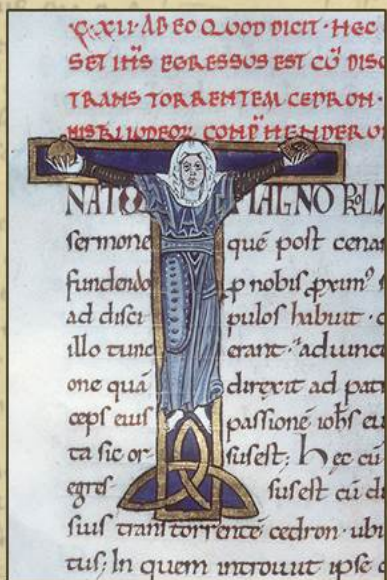 XXII · AB EO QUOD DICIT · HEC
SET IHS̄ EGRESSUS EST CŪ DISC
TRANS TORRENTEM CEDRON ·
MAGNO
sermone quē post cena
fundendo p nobis pximꝰ s
ad disci pulos habuit ·
illo tunc erant · adiunct
one quā direxit ad pat
ceps eius passionē iohs eu
ta sic or susest; Hec cū
egres susest cū d
suis trans torrentē cedron · ubi
tus; In quem introiuit ipse